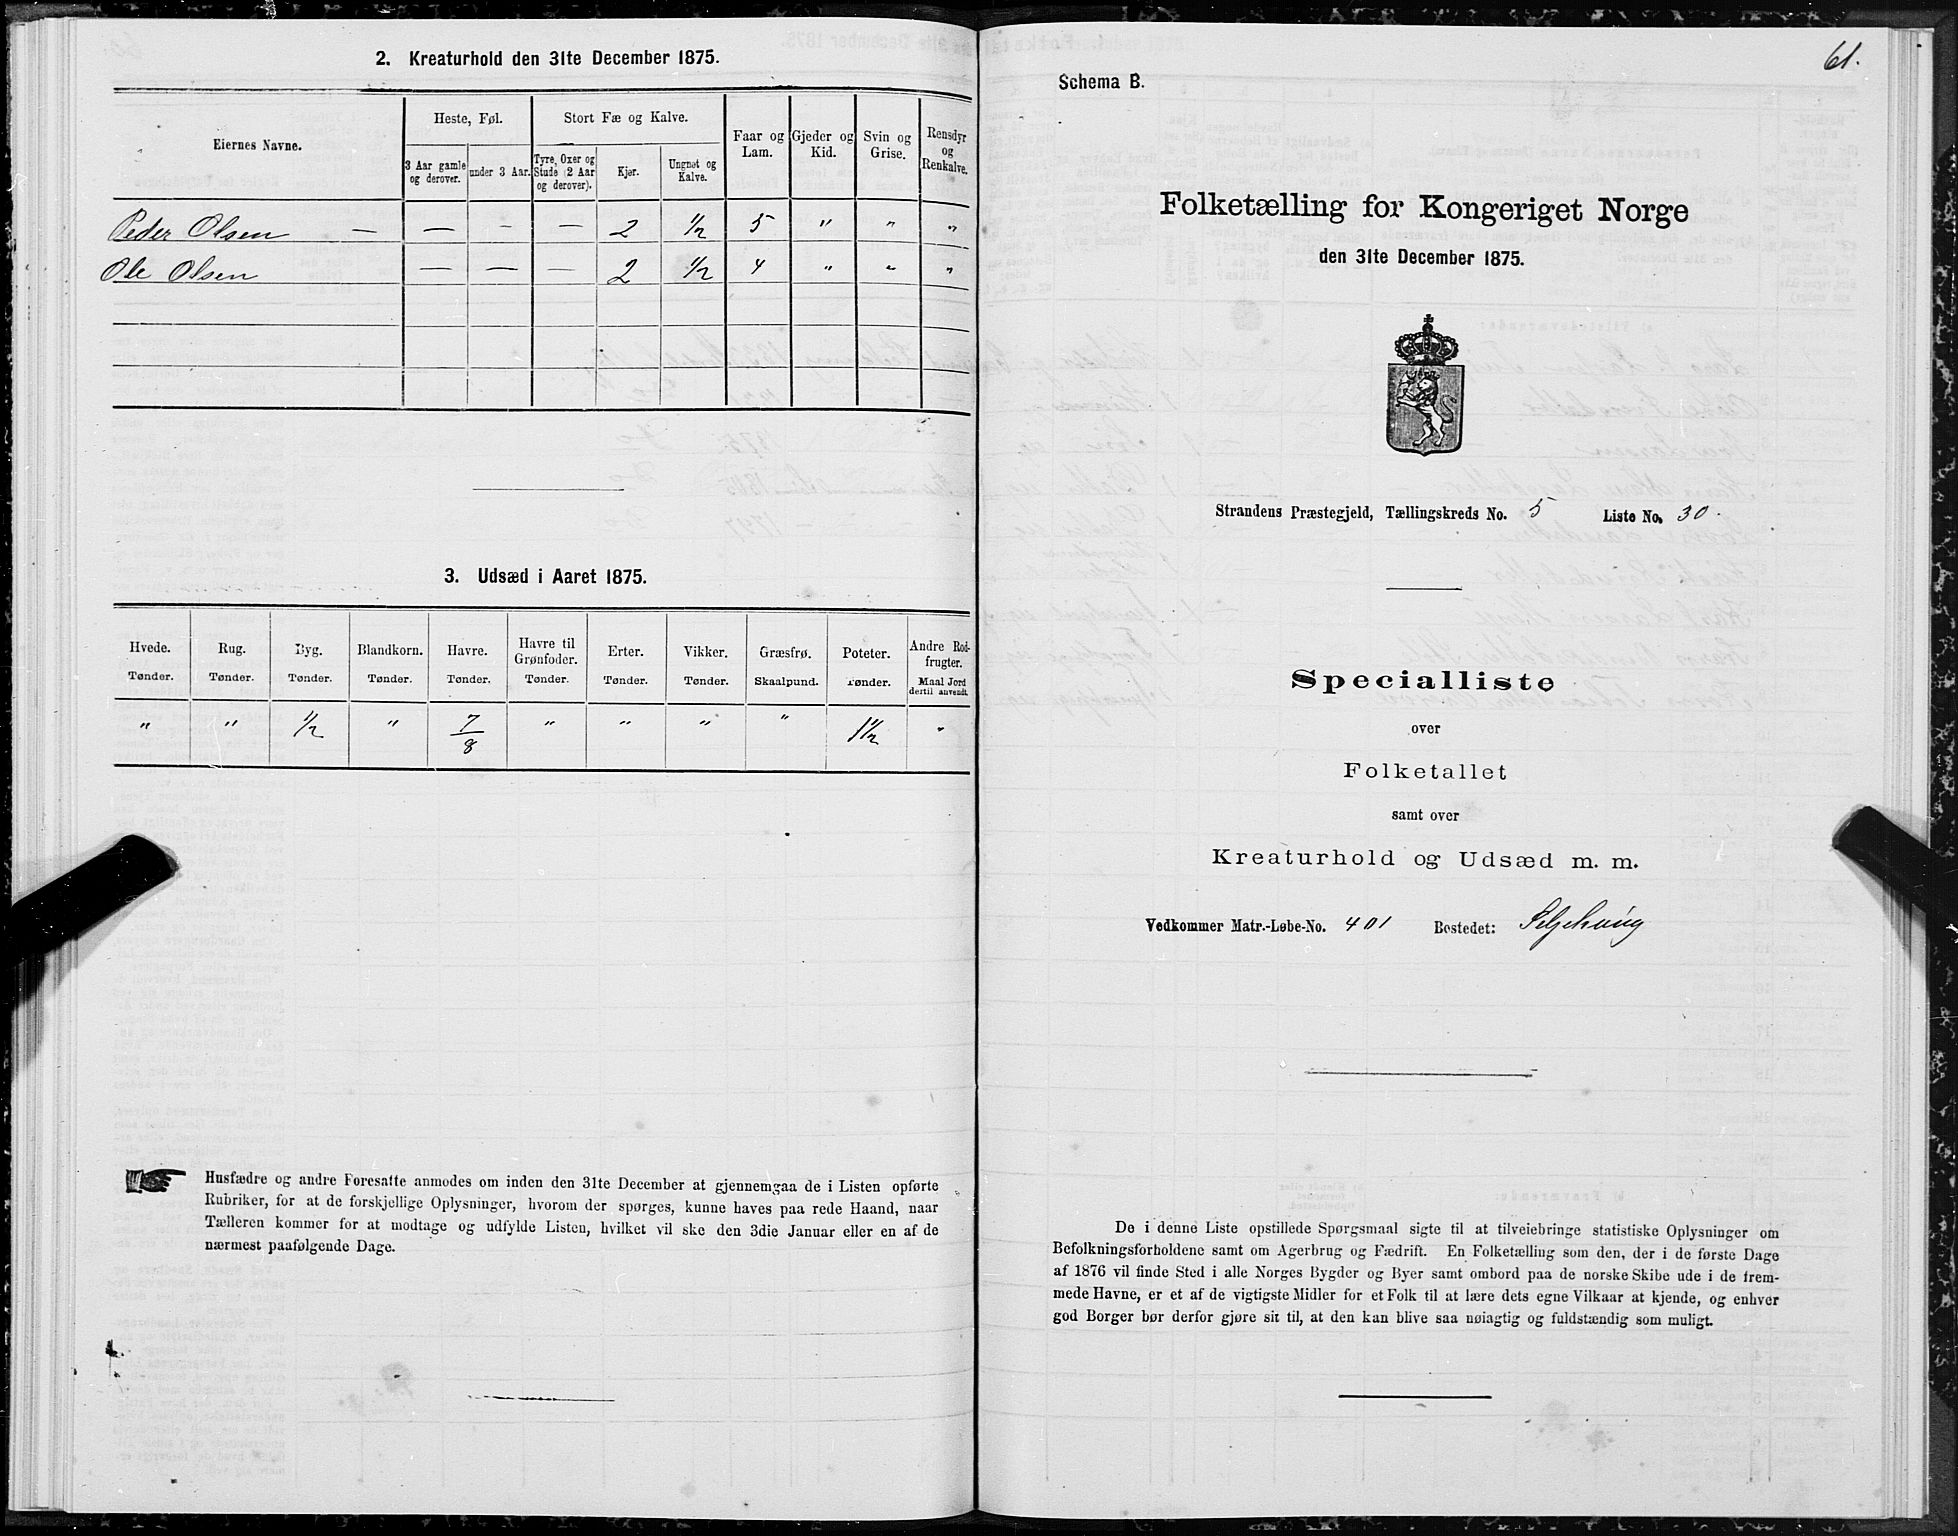 2. Kreaturhold den 31te December 1875.
Eiernes Navne.
Heste, Føl.
Stort Fæ og Kalve.
Faar og Lam.
Gjeder og Kid.
Svin og Grise.
Rensdyr og Renkalve.
3 Aar gamle og derover.
under 3 Aar.
Tyre, Oxer og Stude (2 Aar og derover).
Kjør.
Ungnøt og Kalve.
Peder Olsen — — - — 2 1/2 5 " " "
Ole Olsen — — — 2 1/2 4 " " "
3. Udsæd i Aaret 1875.
Hvede. Rug. Byg. Blandkorn. Havre. Havre til Grønfoder. Erter. Vikker. Græsfrø. Poteter. Andre Rodfrugter.
Tønder. Tønder. Tønder. Tønder. Tønder. Tønder. Tønder. Tønder. Skaalpund. Tønder. Maal Jord dertil anvendt.
" " 1/2 " 7/8 " " " " 1 1/2 "
Husfædre og andre Foresatte anmodes om inden den 31te December at gjennemgaa de i Listen opførte
Rubriker, for at de forskjellige Oplysninger, hvorom der spørges, kunne haves paa rede Haand, naar
Tælleren kommer for at modtage og udfylde Listen, hvilket vil ske den 3die Januar eller en af de
nærmest paafølgende Dage.
61.
Schema B.
Folketælling for Kongeriget Norge
den 31te December 1875.
Strandens Præstegjeld, Tællingskreds No. 5 Liste No. 30.
Specialliste
over
Folketallet
samt over
Kreaturhold og Udsæd m. m.
Vedkommer Matr.-Løbe-No. 401 Bostedet:
De i denne Liste opstillede Spørgsmaal sigte til at tilveiebringe statistiske Oplysninger om
Befolkningsforholdene samt om Agerbrug og Fædrift. En Folketælling som den, der i de første Dage
af 1876 vil finde Sted i alle Norges Bygder og Byer samt ombord paa de norske Skibe ude i de frem-
mede Havne, er et af de vigtigste Midler for et Folk til at lære dets egne Vilkaar at kjende, og enhver
god Borger bør derfor gjøre sit til, at den kan blive saa nøiagtig og fuldstændig som muligt.